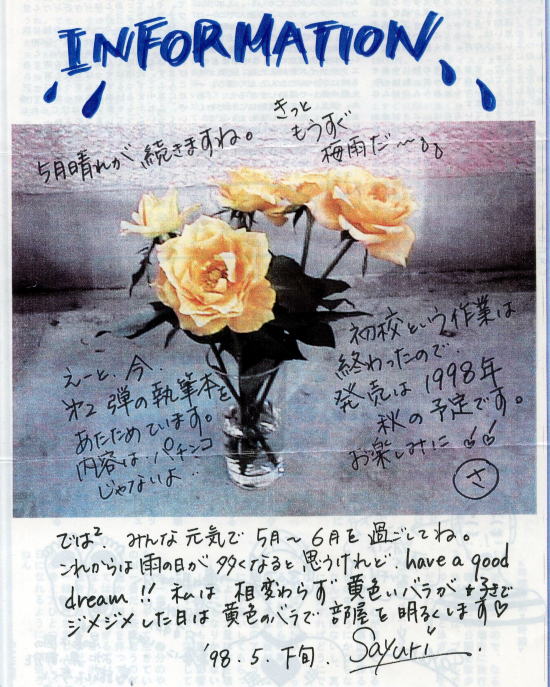 INFORMATION
5月晴れが 続きますね。
きっと
もうすぐ
梅雨だ〜
えーと、今、
第2弾の執筆本を
あたためています。
内容は、パチンコ
じゃないよ
初校という作業は
終わったので、
発売は 1998年
秋の予定です。
お楽しみに
さ
では², みんな元気で 5月〜6月を過ごしてね。
これからは雨の日が多くなると思うけれど、have a good
dream !! 私は 相変わらず、黄色いバラが好きで
ジメジメした日は 黄色のバラで 部屋を明るくします♡
'98.5.下旬. Sayuri.